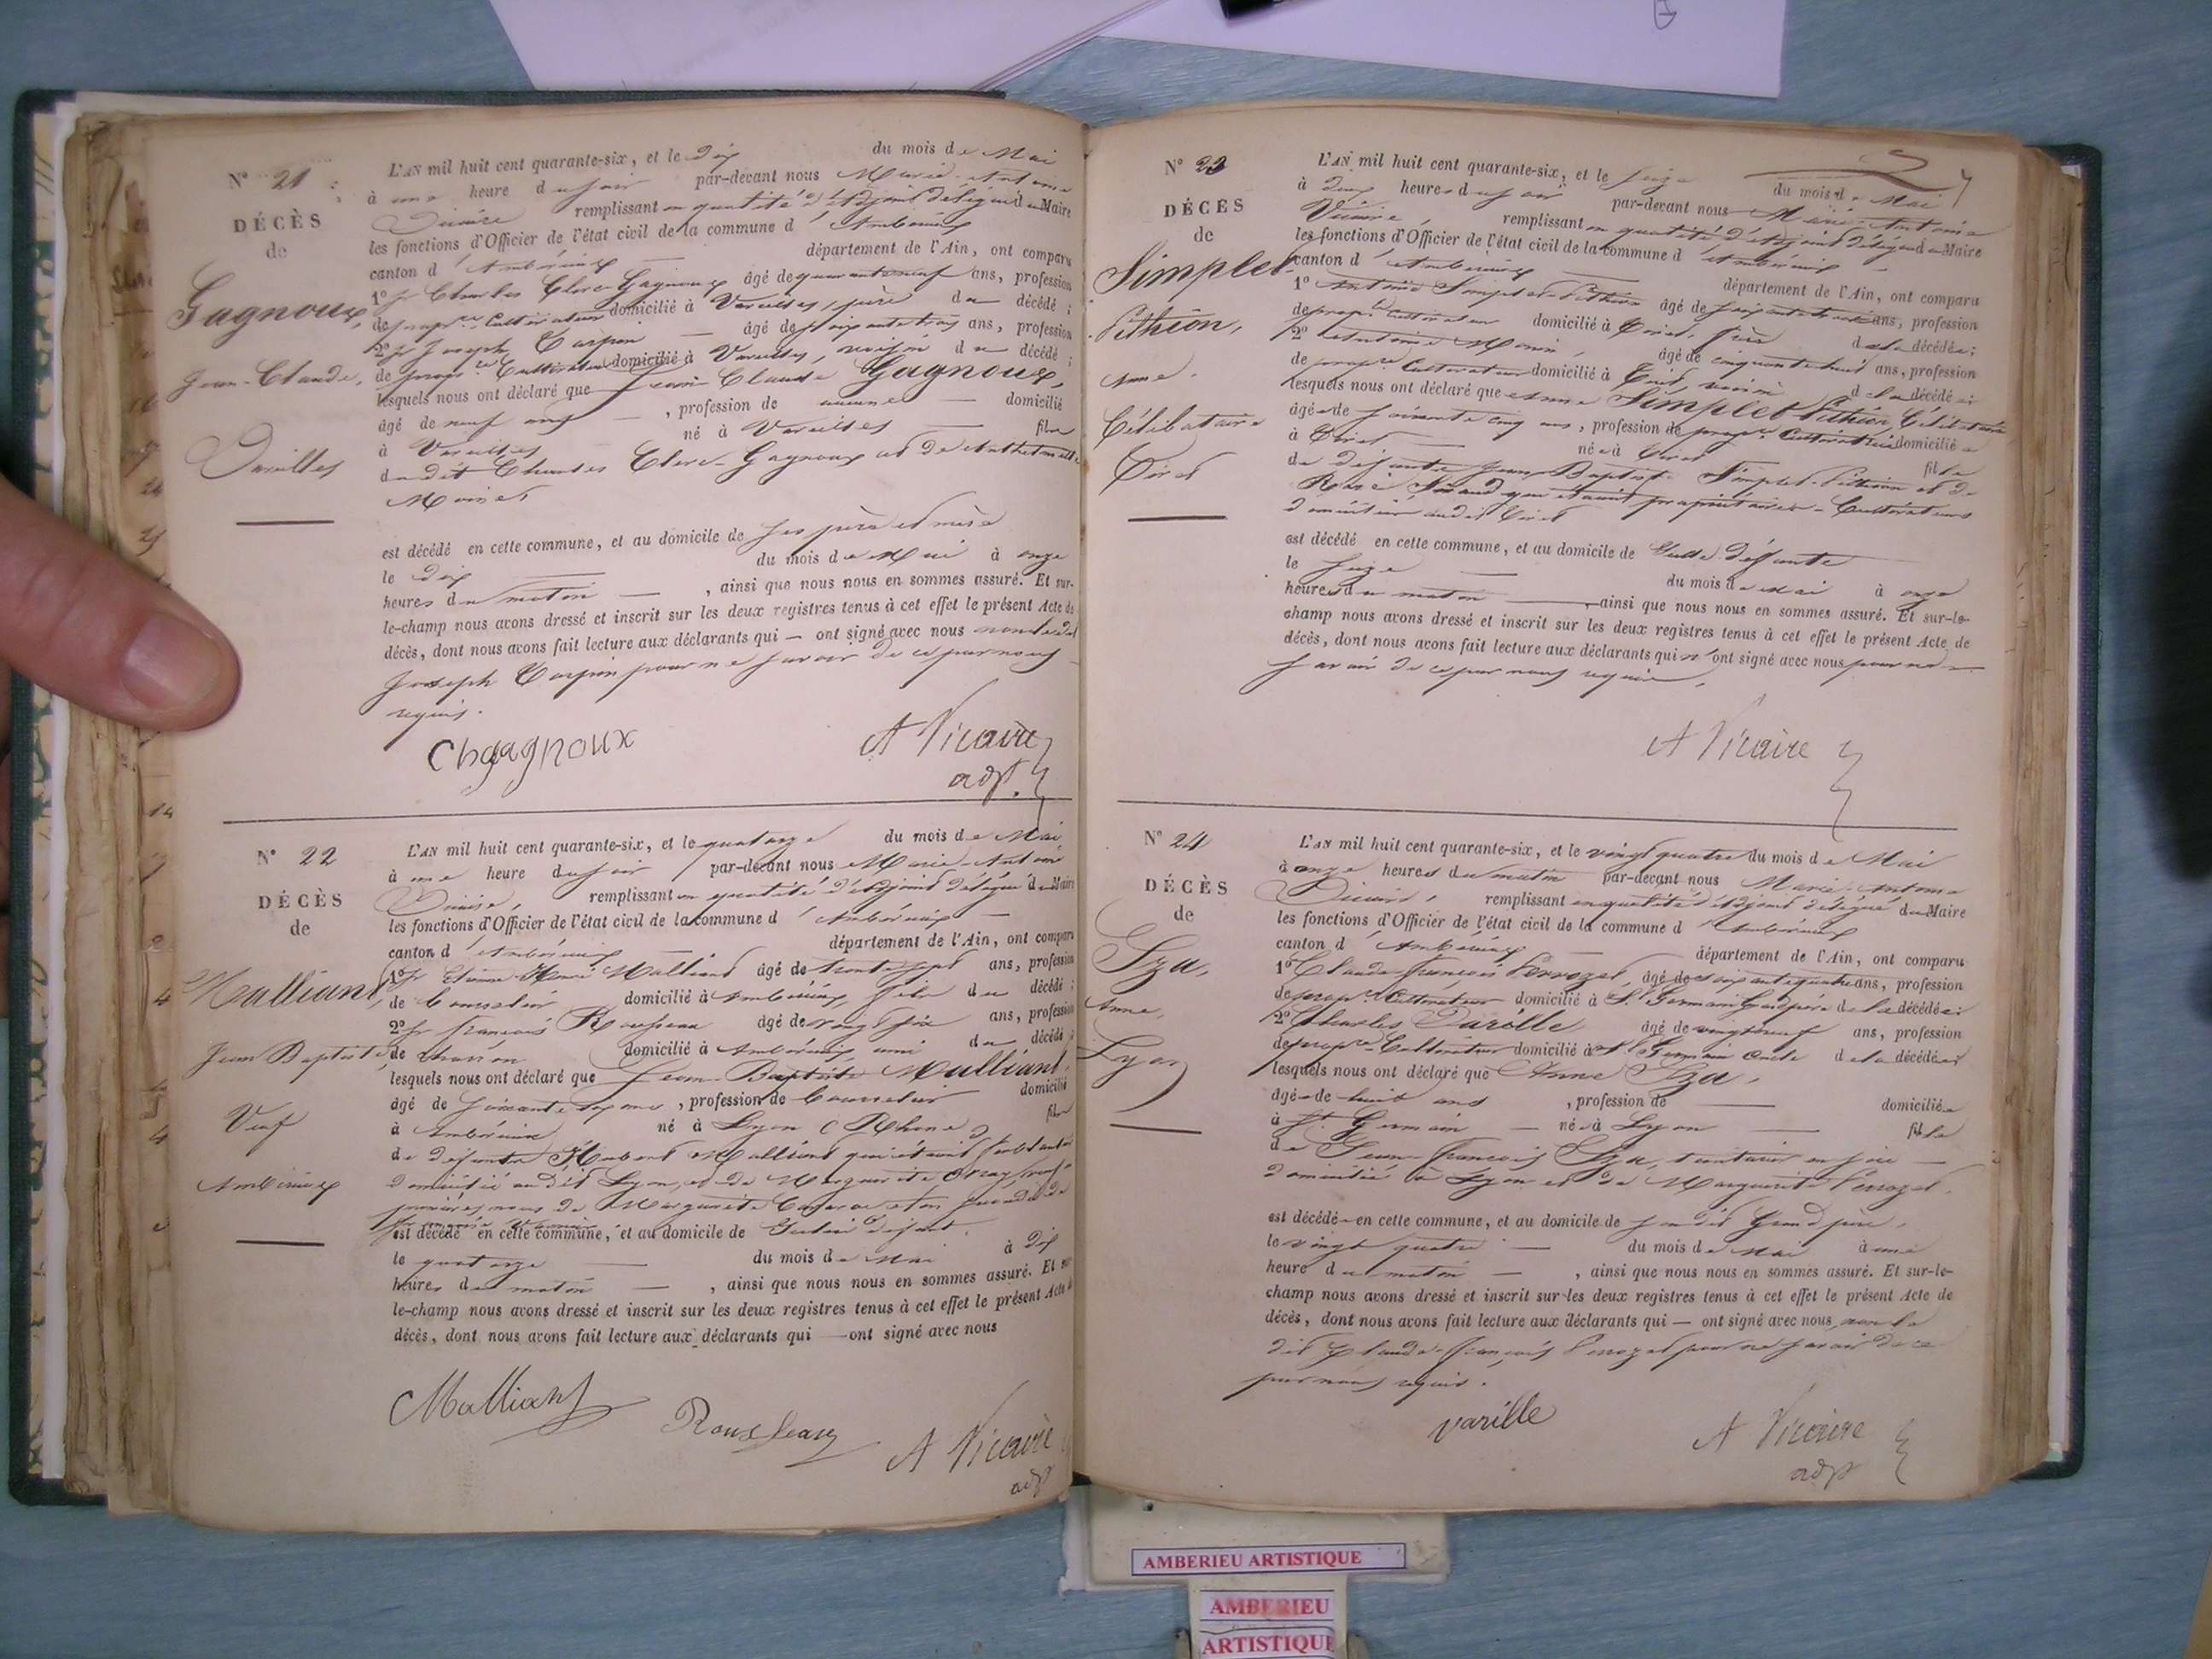 N° 21
DÉCÈS
de
Gagnoux,
Jean-Claude,
Vareilles
L'AN mil huit cent quarante-six, et le dix du mois de Mai
à une heure du soir par-devant nous Marie-Antoine
Vicaire remplissant en qualité d'Adjoint délégué du Maire
les fonctions d'Officier de l'état civil de la commune d'Ambérieux
canton d'Ambérieux département de l'Ain, ont comparu
1° Sr Charles Clerc-Gagnoux âgé de quarante neuf ans, profession
de propre Cultivateur domicilié à Vareilles, père du décédé ;
2° Sr Joseph Carpin âgé de soixante trois ans, profession
de propre Cultivateur domicilié à Vareilles, voisin du décédé ;
lesquels nous ont déclaré que Jean-Claude Gagnoux,
âgé de neuf ans , profession de aucune domicilié
à Vareilles né à Vareilles fils
du dit Charles Clerc-Gagnoux et de
est décédé en cette commune, et au domicile de ses père et mère
le dix du mois de Mai à onze
heures du matin , ainsi que nous nous en sommes assuré. Et sur-
le-champ nous avons dressé et inscrit sur les deux registres tenus à cet effet le présent Acte de
décès, dont nous avons fait lecture aux déclarants qui — ont signé avec nous non ledit
Joseph Carpin pour ne savoir de ce par nous
requis.
Chgagnoux
A Vicaire
adjt.
N° 22
DÉCÈS
de
Malliant,
Jean Baptiste,
Veuf
Ambérieux
L'AN mil huit cent quarante-six, et le quatorze du mois de Mai
à une heure du soir par-devant nous Marie-Antoine
Vicaire, remplissant en qualité d'Adjoint délégué du Maire
les fonctions d'Officier de l'état civil de la commune d'Ambérieux
canton d'Ambérieux département de l'Ain, ont comparu
1° Sr Etienne Malliant âgé de trente sept ans, profession
de Bourrelier domicilié à Ambérieux, fils du décédé ;
2° Sr françois Rousseau âgé de vingt six ans, profession
de charron domicilié à Ambérieux, ami du décédé ;
lesquels nous ont déclaré que Jean-Baptiste Malliant,
âgé de soixante , profession de Bourrelier domicilié
à Ambérieux né à Lyon (Rhône) fils
de défunts Malliant qui étaient
domicilié au dit Lyon, et de Marguerite
de Marguerite
est décédé en cette commune, et au domicile de Ledit défunt.
le quatorze du mois de Mai à dix
heures du matin , ainsi que nous nous en sommes assuré. Et sur-
le-champ nous avons dressé et inscrit sur les deux registres tenus à cet effet le présent Acte de
décès, dont nous avons fait lecture aux déclarants qui — ont signé avec nous
Malliant
Rousseau
A Vicaire
adjt
N° 23
DÉCÈS
de
Simplet-
Pithion,
Anne.
Célibataire
Tiret
L'AN mil huit cent quarante-six, et le seize du mois de Mai
à deux heures du soir par-devant nous Marie-Antoine
Vicaire, remplissant en qualité d'Adjoint délégué du Maire
les fonctions d'Officier de l'état civil de la commune d'Ambérieux
canton d'Ambérieux département de l'Ain, ont comparu
1° Antoine Simplet-Pithion âgé de soixante ans, profession
de propre Cultivateur domicilié à Tiret, frère de la décédée ;
2° Antoine Monin, âgé de cinquante huit ans, profession
de propre Cultivateur domicilié à Tiret, voisin de la décédée ;
lesquels nous ont déclaré que Anne Simplet Pithion Célibataire
âgée de soixante cinq ans , profession de propre Cultivatrice domiciliée
à Tiret née à Tiret fille
de défunts Jean Baptiste Simplet-Pithion et de
Rose qui étaient propriétaires-Cultivateurs
domiciliés audit Tiret
est décédé en cette commune, et au domicile de défunte
le seize du mois de Mai à onze
heures du matin , ainsi que nous nous en sommes assuré. Et sur-le-
champ nous avons dressé et inscrit sur les deux registres tenus à cet effet le présent Acte de
décès, dont nous avons fait lecture aux déclarants qui n'ont signé avec nous pour ne
savoir de ce par nous requis.
A Vicaire
N° 24
DÉCÈS
de
Iza,
Anne,
Lyon
L'AN mil huit cent quarante-six, et le vingt quatre du mois de Mai
à onze heures du matin par-devant nous Marie-Antoine
Vicaire, remplissant en qualité d'Adjoint délégué du Maire
les fonctions d'Officier de l'état civil de la commune d'Ambérieux
canton d'Ambérieux département de l'Ain, ont comparu
1° Claude-françois Perrozet, âgé de soixante quatre ans, profession
de propre Cultivateur domicilié à St Germain Grand père de la décédée ;
2° Charles Varille âgé de vingt neuf ans, profession
de propre Cultivateur domicilié à St Germain oncle de la décédée ;
lesquels nous ont déclaré que Anne Iza,
âgée de huit ans , profession de domiciliée
à St Germain née à Lyon fille
de Jean-françois Iza, teinturier en soie
domicilié à Lyon et de Marguerite Perrozet.
est décédée en cette commune, et au domicile de son dit Grand père,
le vingt quatre du mois de Mai à une
heure du matin , ainsi que nous nous en sommes assuré. Et sur-le-
champ nous avons dressé et inscrit sur les deux registres tenus à cet effet le présent Acte de
décès, dont nous avons fait lecture aux déclarants qui — ont signé avec nous non le
dit Claude-françois Perrozet pour ne savoir de ce
par nous requis.
varille
A Vicaire
adjt
AMBERIEU ARTISTIQUE
AMBERIEU
ARTISTIQUE